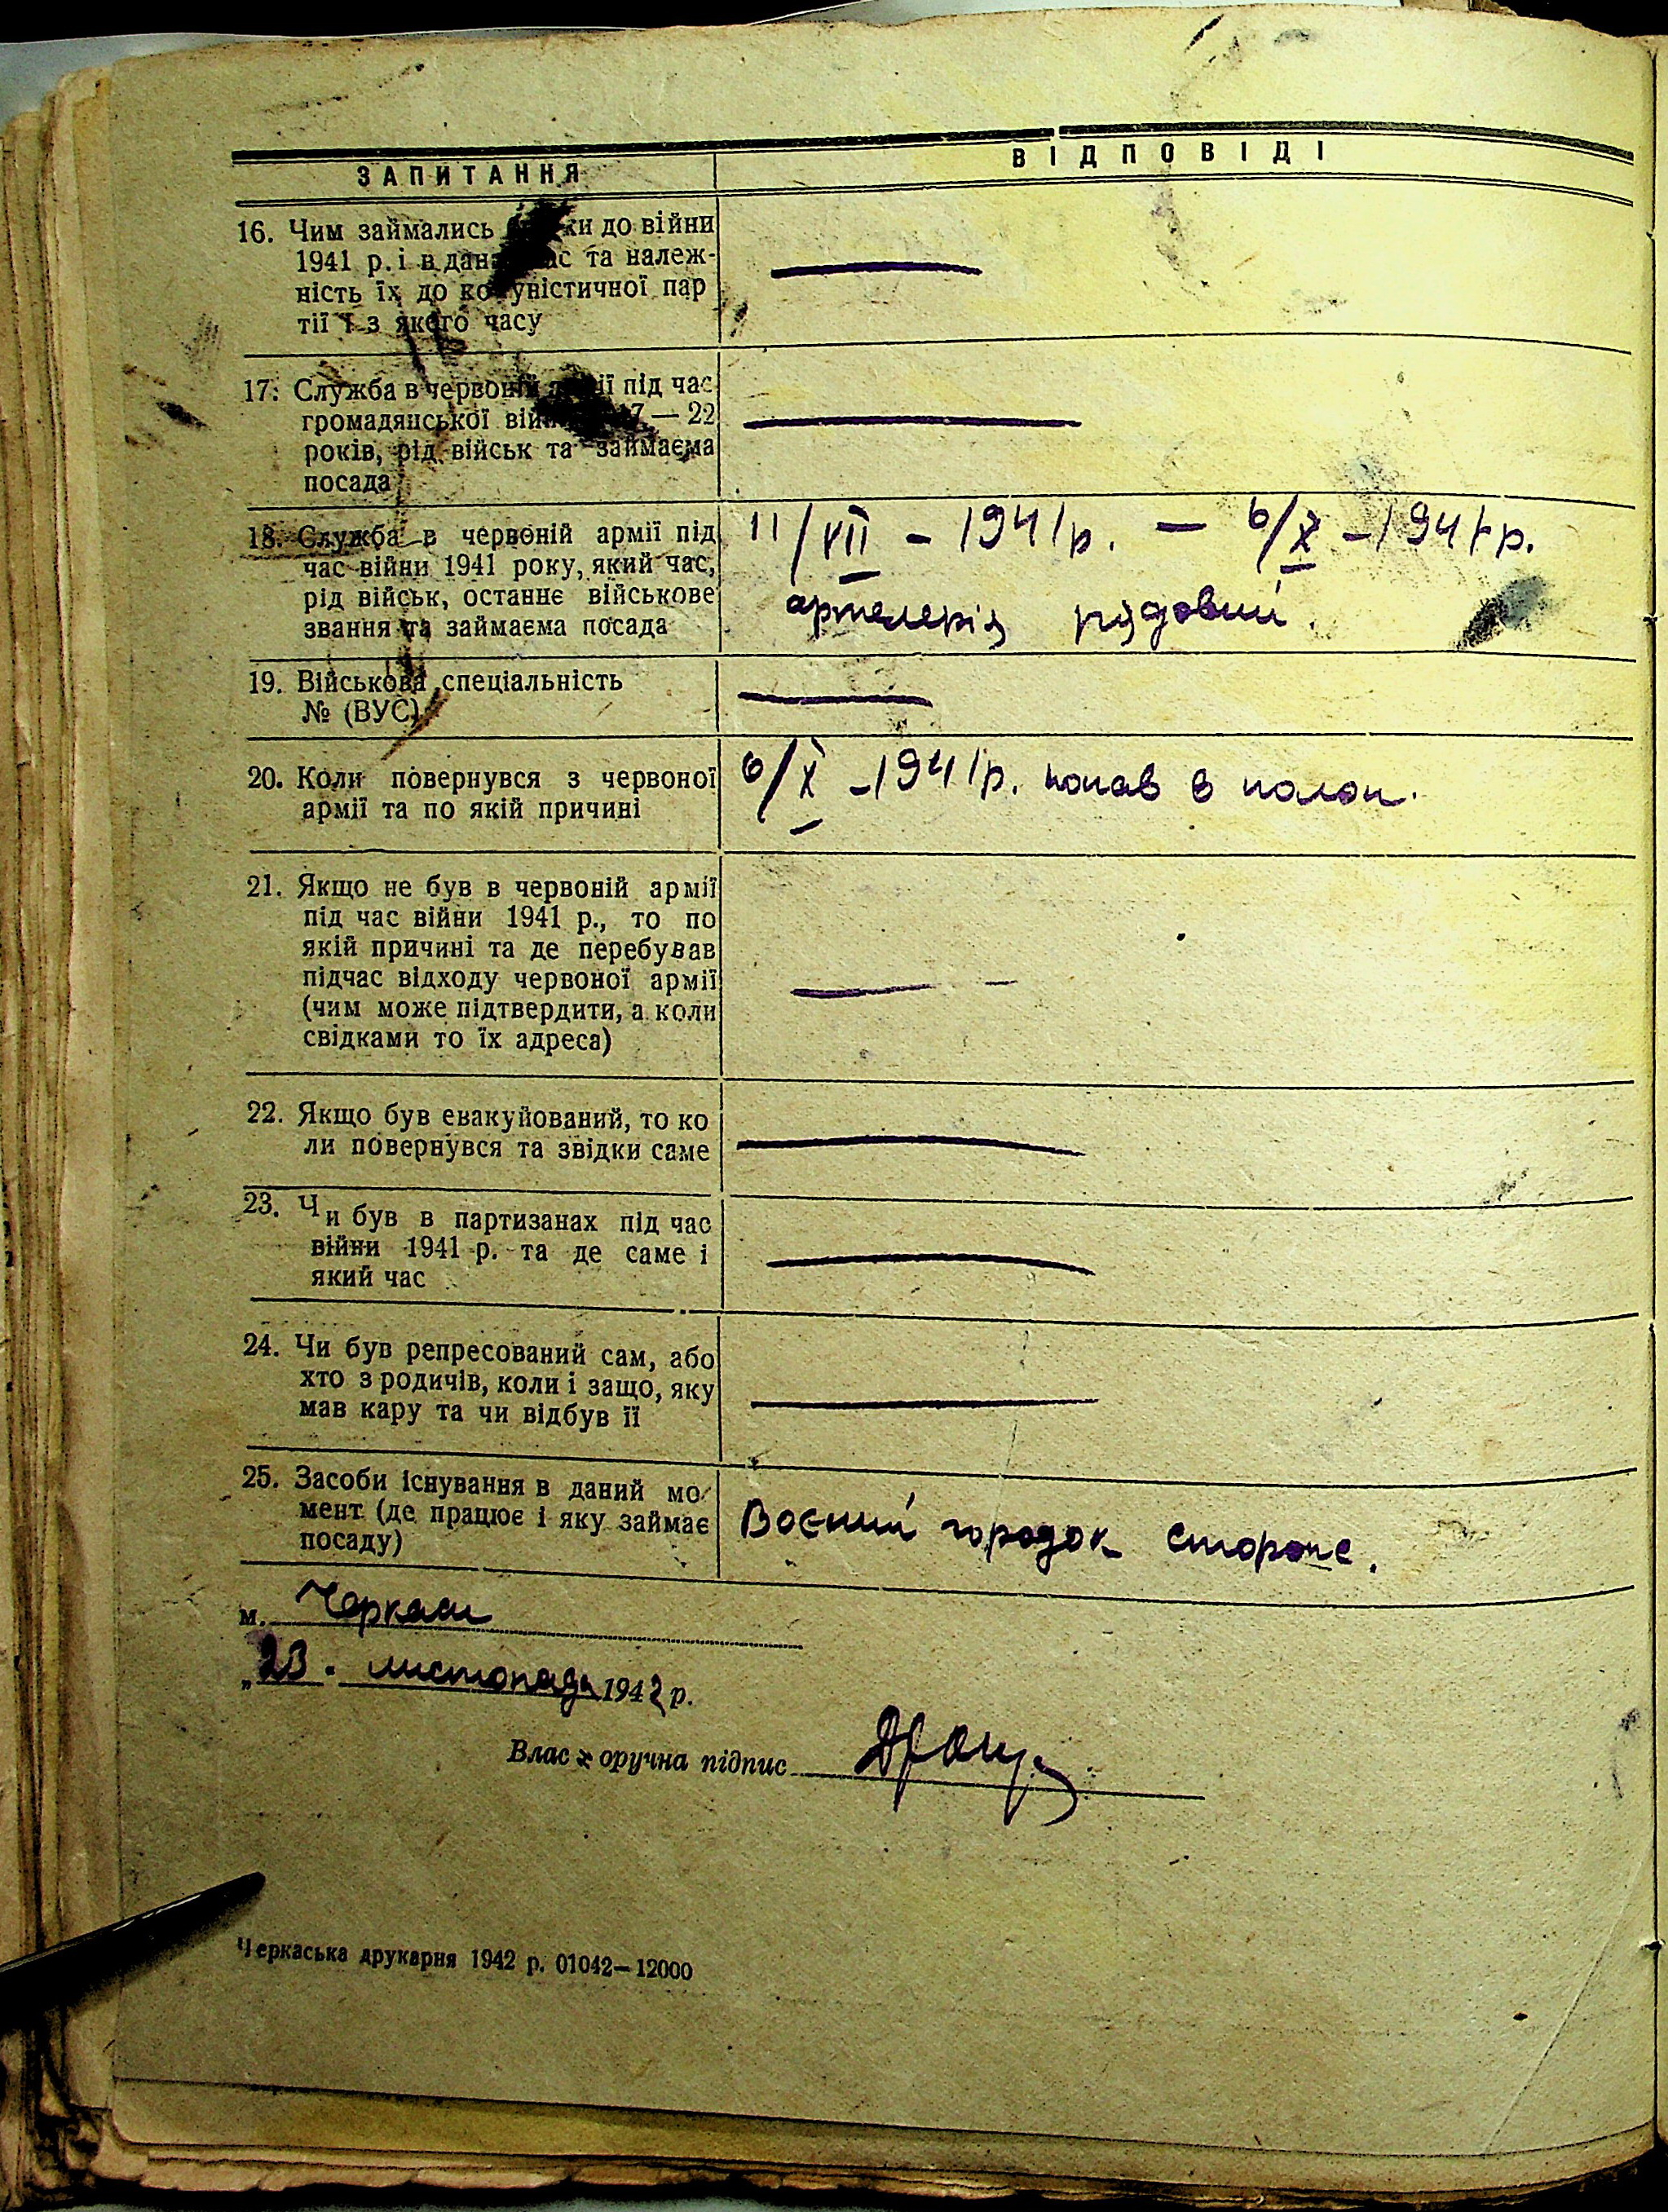 ЗАПИТАННЯ
ВІДПОВІДІ
16. Чим займались ки до війни
1941 р. і в дан ас та належ-
ність їх до ко уністичної пар
тії і з якого часу
17. Служба в червоній ії під час
громадянської вій 7 — 22
років, рід військ та займаєма
посада
18. Служба в червоній армії під
час війни 1941 року, який час,
рід військ, останнє військове
звання та займаєма посада
11/VII - 1941 р. — 6/X - 1941 р.
артелерія рядовий.
19. Військова спеціальність
№ (ВУС)
20. Коли повернувся з червоної
армії та по якій причині
6/X - 1941 р. попав в полон.
21. Якщо не був в червоній армії
під час війни 1941 р., то по
якій причині та де перебував
підчас відходу червоної армії
(чим може підтвердити, а коли
свідками то їх адреса)
22. Якщо був евакуйований, то ко
ли повернувся та звідки саме
23. Чи був в партизанах під час
війни 1941 р. та де саме і
який час
24. Чи був репресований сам, або
хто з родичів, коли і защо, яку
мав кару та чи відбув її
25. Засоби існування в даний мо
мент (де працює і яку займає
посаду)
Воєний городок
м. Черкаси
„23. листопада 1942 р.
Влас оручна підпис
Черкаська друкарня 1942 р. 01042—12000